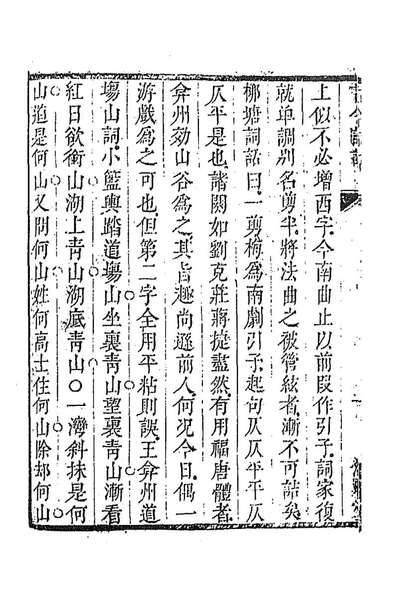 上似不必增西字今南曲止以前段作引子詞家復
就单調別名剪半將法曲之被管絃者漸不可詰矣
柳塘詞話曰一剪梅爲南劇引子起句仄仄平平仄
仄平是也諸闋如劉克莊蔣捷盡然有用福唐體者
弇州効山谷爲之其旨趣尚遜前人何况今日偶一
游戲爲之可也但第二字全用平粘則誤王弇州道
塲山詞小籃輿踏道塲山坐裏青山望裏青山漸看
紅日欲銜山湖上青山湖底青山〇一灣斜抹是何
山道是何山又問何山姓何高士住何山除却何山